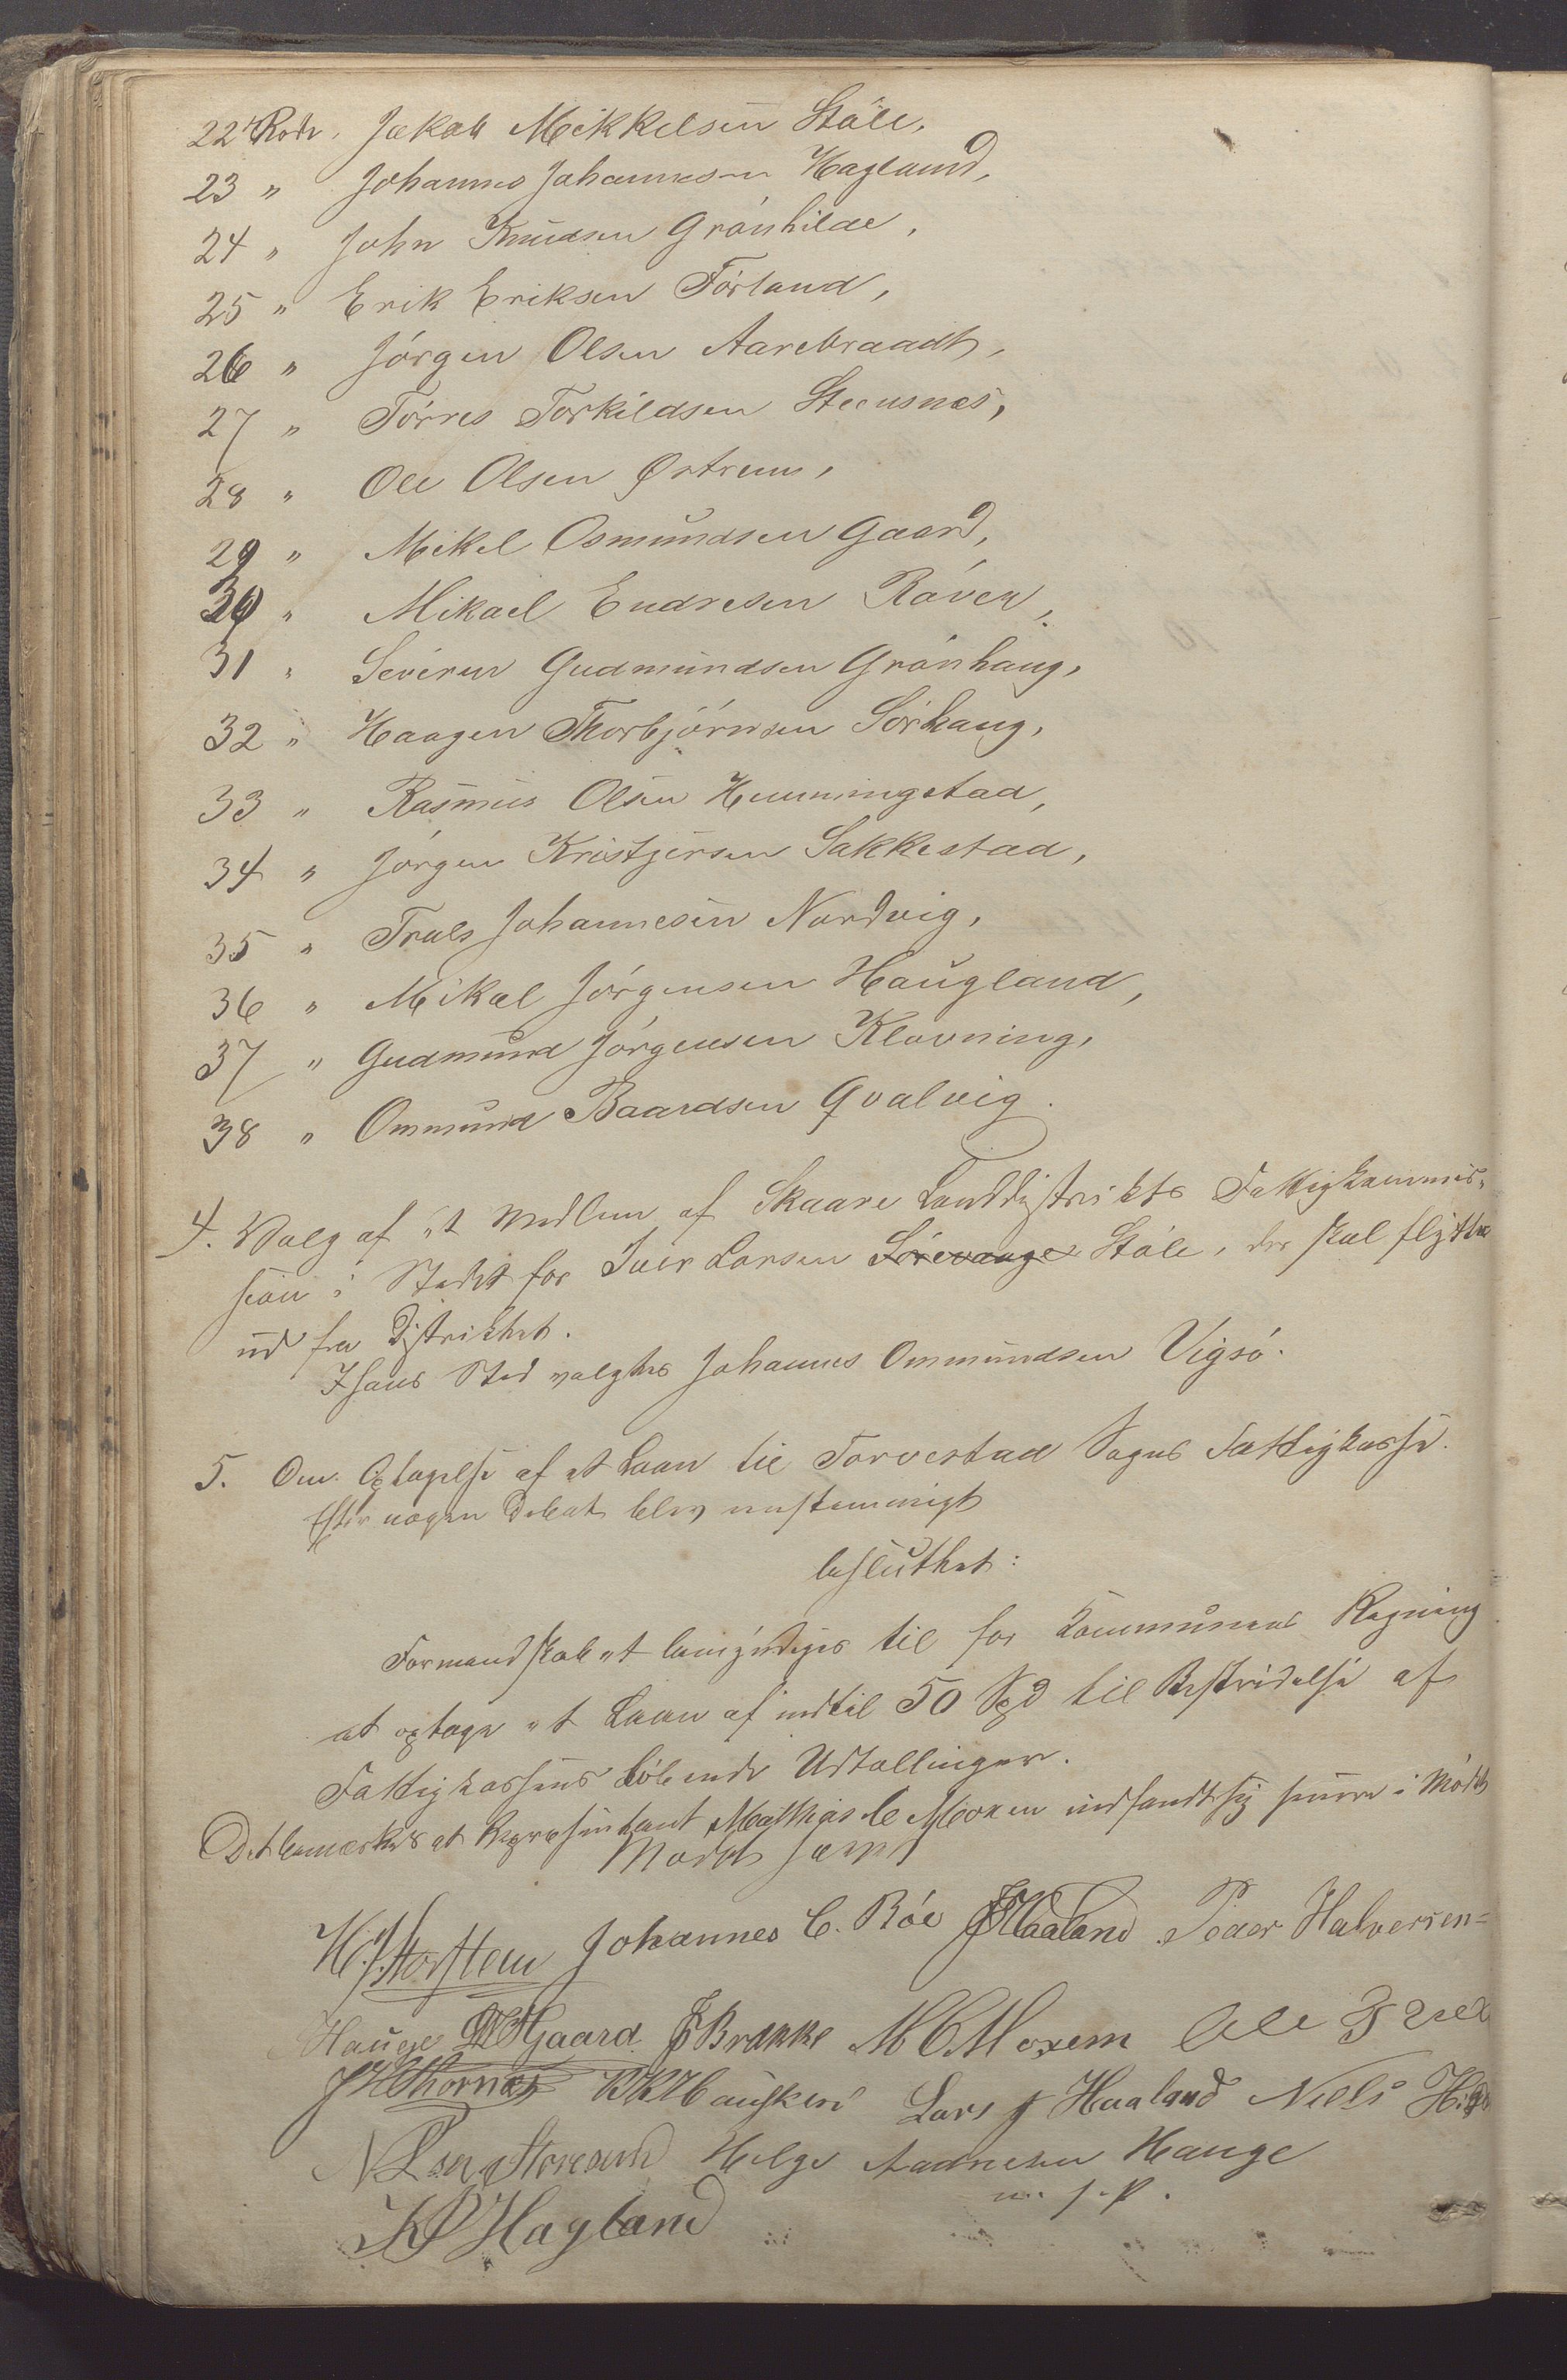 22 Rode, Jakob Mikkelsen Ståle,
23 " Johannes Johannesen Hagland,
24 " John Knudsen Grónhilde,
25 " Erik Eriksen Fórland,
26 " Jórgen Olsen Aarebraadt,
27 " Tórres Torkildsen Steensnes,
28 " Ole Olsen Østrem,
29 " Mikel Osmundsen Gaard,
30 " Mikael Endresen Róver,
31 " Severin Gudmundsen Grónhaug,
32 " Haagen Thorbjórnsen Sórhaug,
33 " Rasmus Olsen Hemmingstad,
34 " Jórgen Kristjersen Sakkestad,
35 " Truls Johannesen Nordvig,
36 " Mikal Jórgensen Haugland,
37 " Gudmund Jórgensen Klovning,
38 " Ommund Baardsen Qvalvig.
4. Valg af et Medlem af Skaare Landdistrikts Fattigkommis-
sion i Stedet for Iver Larsen Sórevange Ståle, der skal flytte
ud fra Distriktet.
I hans Sted valgtes Johannes Ommundsen Vigsó.
5. Om Optagelse af et Laan til Torvestad Sogns Fattigkasse.
Efter nogen Debat blev enstemmigt
besluttet:
Formandskabet bemyndiges til for Kommunens Regning
at optage et Laan af indtil 50 Spd til Bestridelse af
Fattigkassens lóbende Udtallinger.
Det bemærkes at Repræsentant Mathias C Moxen indfandt sig senere i Módet
Módet hævet
H. J. Storstein Johannes C. Róe Haaland Peder Halversen
Hauge Gaard Brekke M C Moxem Ole
Thornes Hausken Lars J Haaland Niels
Storesund Helge Aadnesen Hauge
m. f. P.
K P Hagland